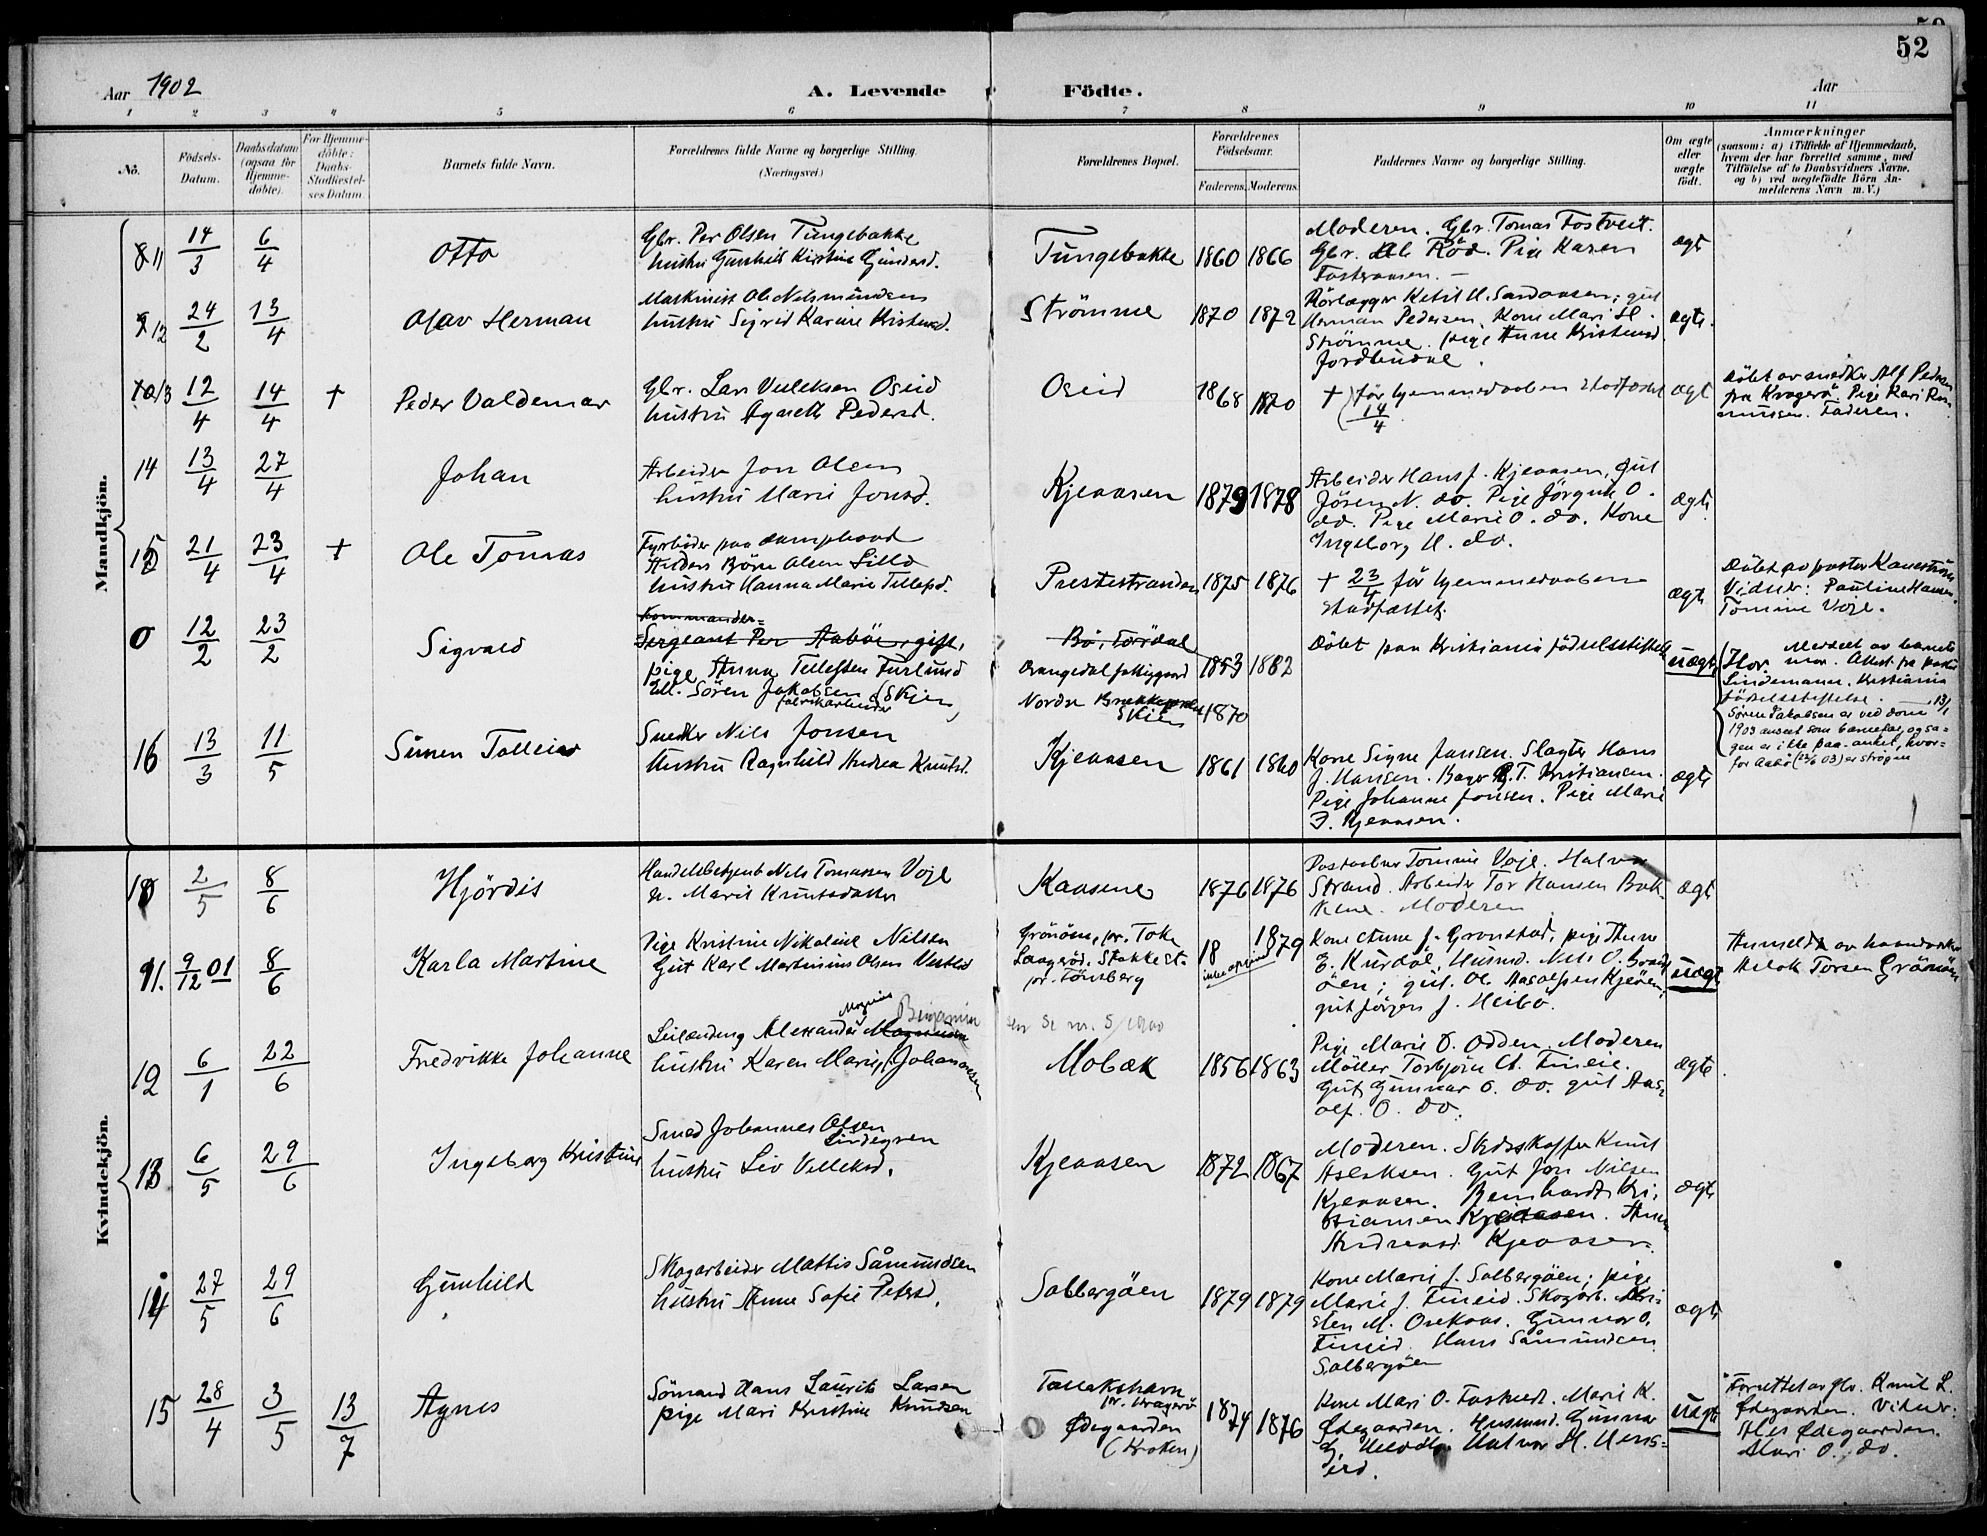 52
Aar 1902
A. Levende Födte.
Aar
1 2 3 4 5 6 7 8 9 10 11
No.
Födsels-Datum.
Daabsdatum (ogsaa för Hjemmedöbte).
For Hjemmedöbte: Daabs-Stadfæstelses Datum
Barnets fulde Navn.
Forældrenes fulde Navne og borgerlige Stilling. (Næringsvei.)
Forældrenes Bopæl.
Forældrenes Födselsaar.
Faderens. Moderens.
Faddernes Navne og borgerlige Stilling.
Om ægte eller uægte födt.
Anmærkninger
(saasom: a) i Tilfælde af Hjemmedaab,
hvem der har forrettet samme, med
Tilföielse af to Daabsvidners Navne,
og b) ved uægtefödte Börn Anmelderens Navn m. V.)
Mandkjön.
11 14/3 6/4 Otto
Gbr. Per Olsen Tungebakke
hustru Gunhild Kirstine Gundersd.
Tungebakke 1860 1866
Moderen. Gbr. Tomas Fostveit.
Gbr. Ole Röd. Pige Karen
ægt
12 24/2 13/4 Olav Herman
Maskinist Ole Nilsen
hustru Sigrid Karine Kristensd.
Strömme 1870 1872
Herman Pedersen. Kone Mari H.
Strömme. pige Anne Kristensd.
Jordbudal.
ægte
13 12/4 14/4 † Peder Valdemar
Gbr. Lars Vetleksen Oseid
hustru Agneth Pedersd.
Oseid 1868 1870
† för hjemmedaaben stadfæstet 14/4
ægt
Döbt av snedker Alf Pedersen
fra Kragerö. Pige Kari Rasmussen. Faderen.
14 13/4 27/4 Johan
Arbeider Jon Olsen
hustru Marie Jonsd.
Kjeaasen 1879 1878
Arbeider Hans J. Kjeaasen, gut
Jören N. do. Pige Jörgine O.
do. Pige Marie O. do. Kone
Ingeborg H. do.
ægte
15 21/4 23/4 † Ole Tomas
Fyrböder paa dampbaad
Anders Börre Olsen Lillo
hustru Hanna Marie Tellefsd.
Prestestranden 1875 1876
† 23/4 för hjemmedaaben
stadfæstet.
ægte
Döbt av pastor
Vidner: Pauline Hansen.
Tomine Voje.
0 12/2 23/2 Sigvald
Kommander-
Sergeant Per Aabö, gift,
pige Anna Tellefsen Furlund
Ell. Sören Jakobsen (Skien)
fabrikarbeider
Bö, Törrdal
Drangedal fattiggaard 1853 1882
Nordre Brekkegaden Skien 1870
Döbt paa Kristiania födselsstiftelse
uægte
Hor. Meddelt av barnets
mor. Attest fra pastor
Lindemann. Kristiania
födselsstiftelse.
Sören Jakobsen er ved dom 13/1
1903 anseet som barnefar, og sagen er ikke paa-anket, hvorfor Aabö er strögen
16 13/3 11/5 Simen Tolleiv
Snedker Nils Jonsen
Hustru Ragnhild Andrea Knutsd.
Kjeaasen 1861 1860
Kone Signe Jansen. Slagter Hans
J. Hansen. Bager T. Kristiansen.
Pige Johanne Jonsen. Pige Marie
J. Kjeaasen.
ægte
Kvindekjön.
10 2/5 8/6 Hjördis
Handelsbetjent Nils Tomassen Voje
h. Marit Knutsdatter
Kaasene 1876 1876
Postaabner Tomine Voje. Halvor
Strand. Arbeider Tor Hansen Bakkene. Moderen
ægte
11. 9/12 01 8/6 Karla Martine
Pige Kristine Nikoline Nilsen
Gut Karl Martinius Olsen
Grönöen, pr. Toke
Laageröd, Stokke st.
pr. Tönsberg
18 ikke opgivet 1879
Kone Anne J. Gronstad, pige Anne
E. Kurdöl, Husmd. Nils O. Grönöen; gut. Ole Aasolfsen Kjeöen;
gut Jörgen J. Heibö.
uægte
Anmeldt av haandverker
Aslak Torsen Grönöen
12 6/1 22/6 Fredrikke Johanne
Leilænding Alexander Magnus Benjamin
hustru Karen Marie Johannesen
sen se nr. 5/1900
Mobæk 1856 1863
Pige Marie O. Odden. Moderen
Möller Torbjörn A. Fineie.
Gut Gunnar O. do. gut Aasolf. O. do.
ægte
13 6/5 29/6 Ingeborg Kristine
Smed Johannes Olsen
Lindegren
hustru Liv Vetleksd.
Kjeaasen 1872 1867
Moderen. Skydsskaffer Knut
Aslaksen. Gut Jon Nilsen
Kjeaasen. Bernhardt Kristiansen Kjeaasen. Anne
Andreasd. Kjeaasen.
ægte
14 27/5 29/6 Gunhild
Skogarbeider Mattis Såmundsen
hustru Anne Sofie Petersd.
Solbergöen 1879 1879
Kone Marie J. Solbergöen; pige
Marie J. Fineid. Skogarb. Kristen M. Osekaas. Gunnar O.
Fineid. Hans Såmundsen
Solbergöen
ægte
15 28/4 3/5 13/7 Agnes
Sömand Hans Laurits Larsen
pige Mari Kristine Knudsen
Tallakshavn
pr. Kragerö
Ödegaarden
(Kroken)
1874 1876
Kone Mari O. Fostveit. Marie K.
Ödegaarden. Husmd. Gunnar
G. Halvor H.
uægte
Forrettet av gbr. Knut L.
Ödegaarden. Vidner:
Ales Ödegaarden.
Mari O. do.